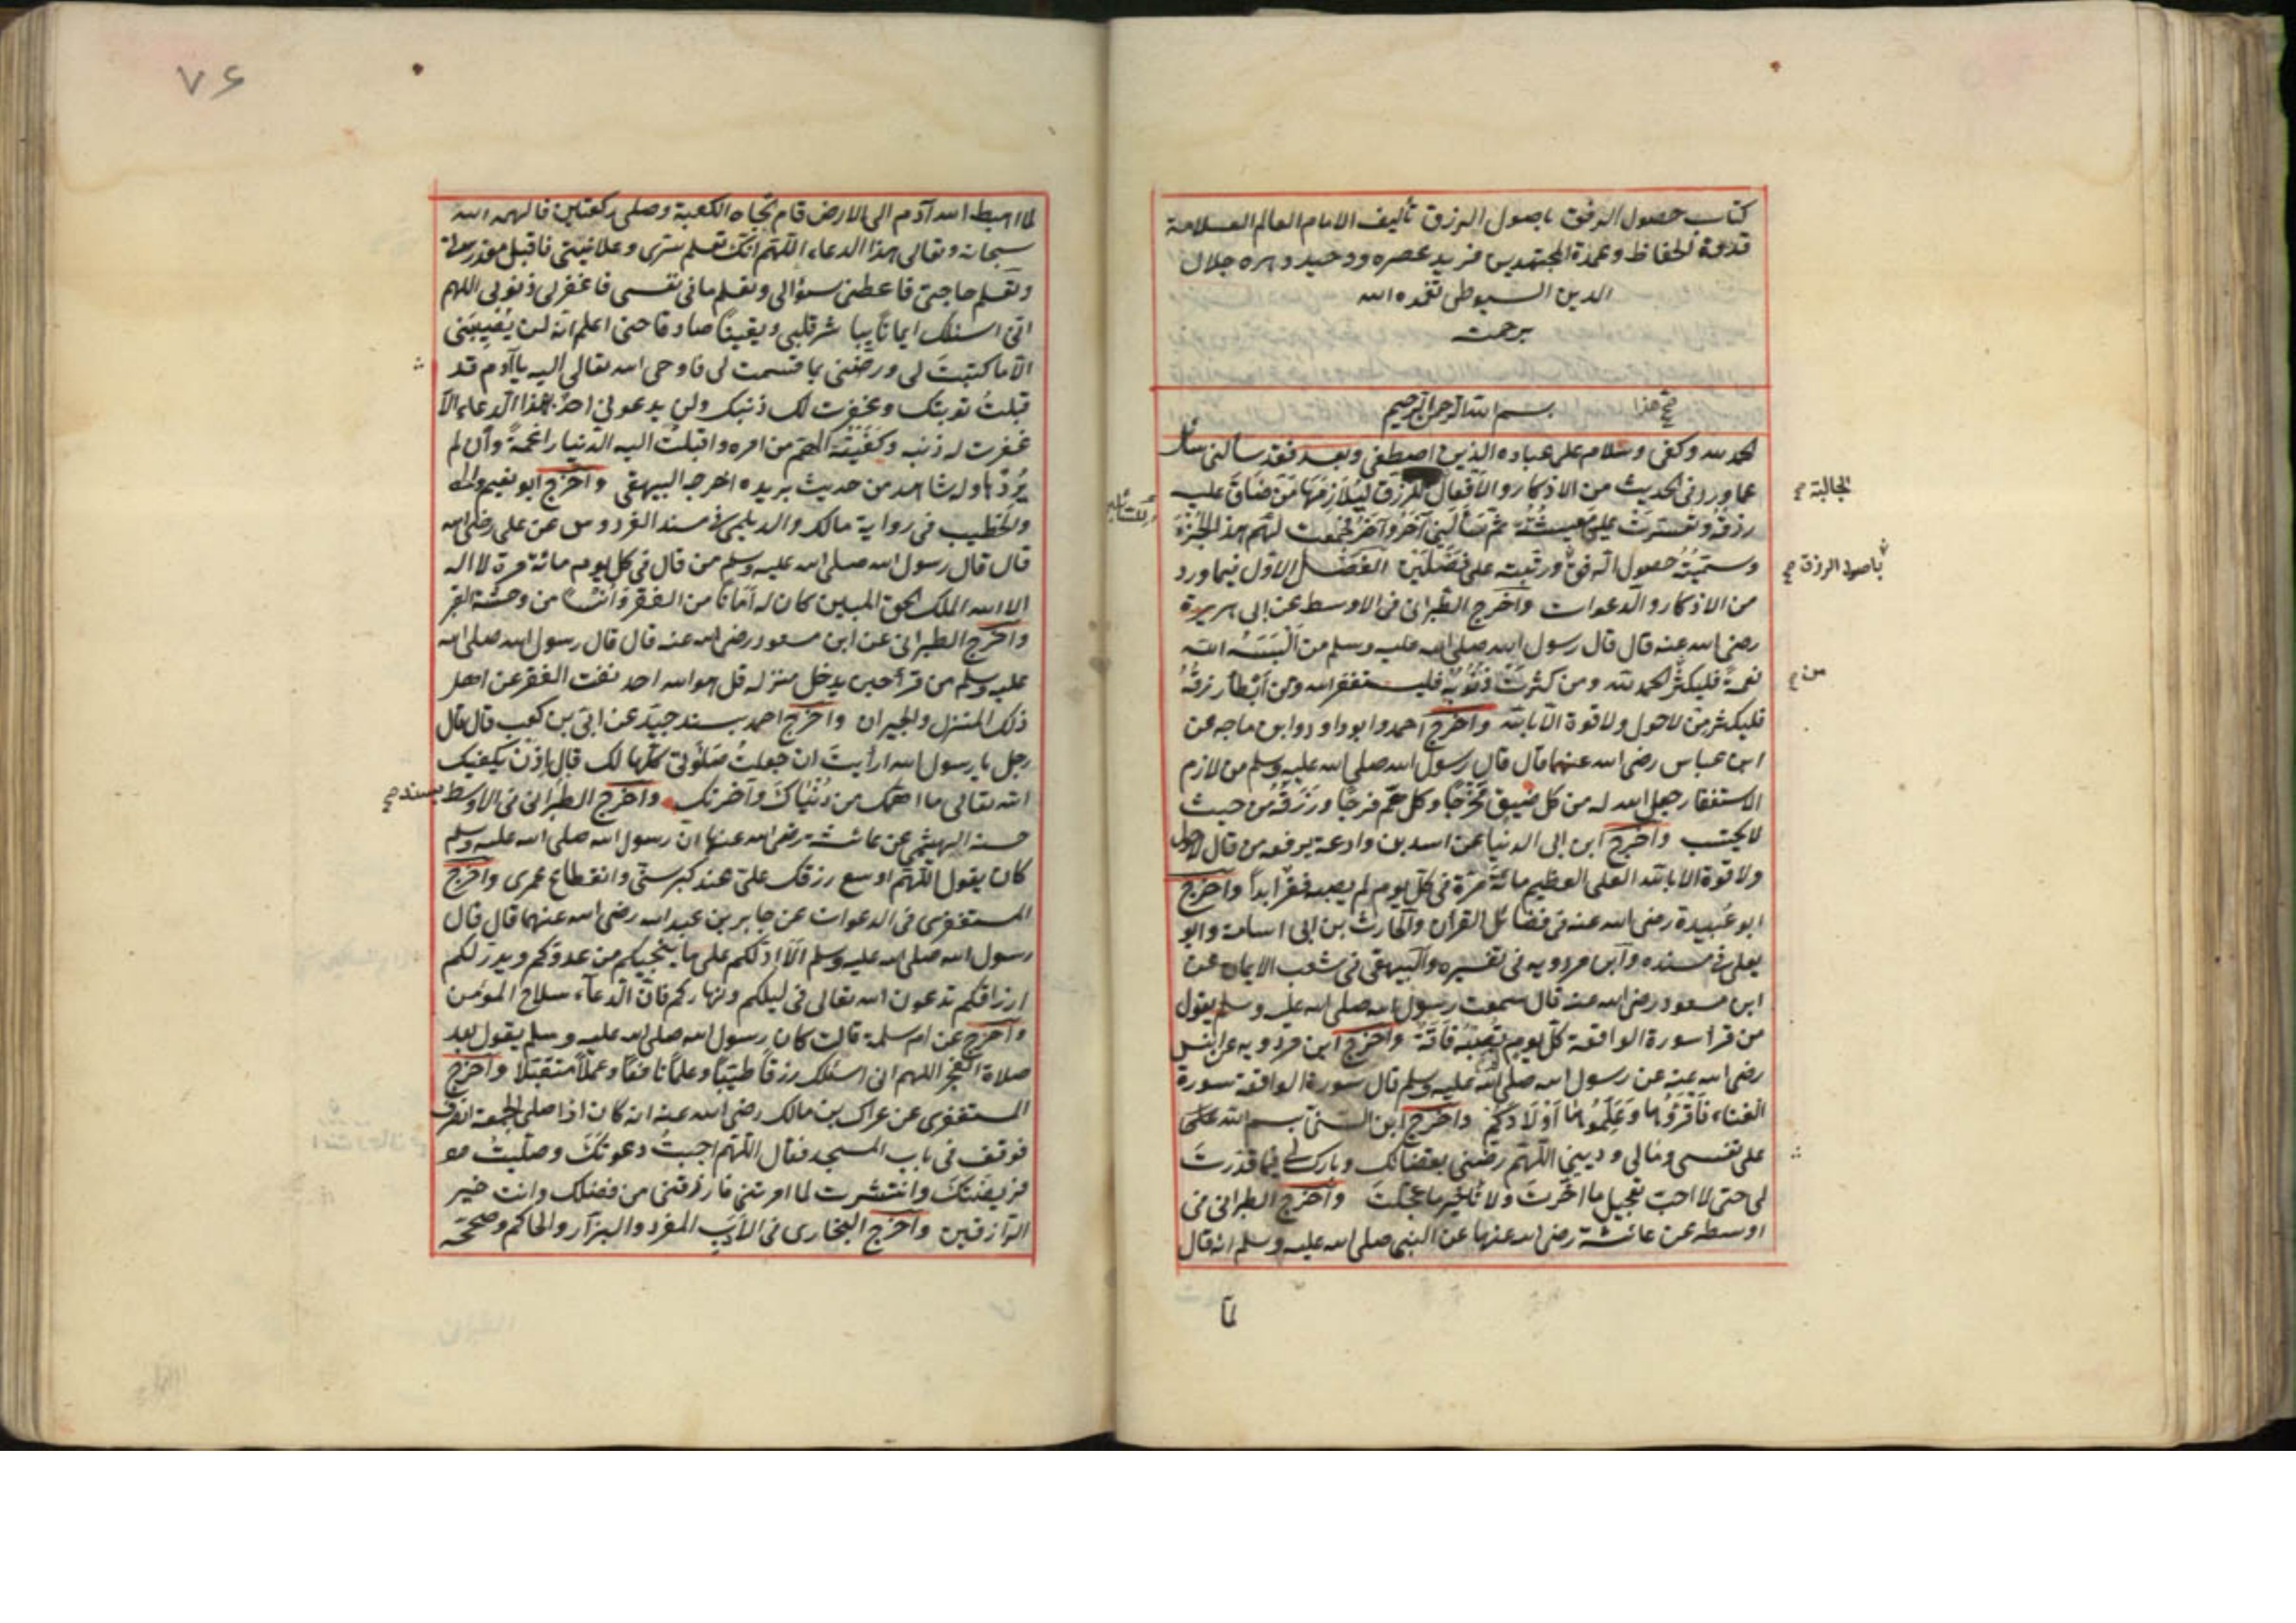 كتاب حصول الرفق باصول الرزق تأليف الامام العالم العلامة
قدوة الحفاظ وعمدة المجتهدين فريد عصره ووحيد دهره جلال
الدين السيوطى تغمده الله
برحمته
بسم الله الرحمن الرحيم
الحمد لله وكفى وسلام على عباده الذين اصطفى وبعد فقد سالنى سائل
عما ورد فى الحديث من الاذكار والافعال للرزق ليلازمها من ضاق عليه
الجالبة صح
رزقه وتعسرت عليه معيشته ثم سألنى آخر وآخر فجمعت لهم هذا الجزء
وسميته حصول الرفق ورتبته على فصلين الفصل الاول فيما ورد
باصول الرزق صح
من الاذكار والدعوات واخرج الطبرانى فى الاوسط عن ابى هريرة
رضى الله عنه قال قال رسول الله صلى الله عليه وسلم من ألبسه الله
نعمة فليكثر الحمد لله ومن كثرت ذنوبه فليستغفر الله ومن أبطأ رزقه
من صح
فليكثر من لاحول ولا قوة الا بالله واخرج احمد وابو داود وابن ماجه عن
ابن عباس رضى الله عنهما قال قال رسول الله صلى الله عليه وسلم من لازم
الاستغفار جعل الله له من كل ضيق مخرجا وكل هم فرجا ورزقه من حيث
لا يحتسب واخرج ابن ابى الدنيا عن اسد بن وادعة يرفعه من قال لاحول
ولا قوة الا بالله العلى العظيم مائة مرة فى كل يوم لم يصبه فقر ابدا واخرج
ابو عبيدة رضى الله عنه فى فضائل القرآن والحارث بن ابى اسامة وابو
يعلى فى مسنده وابن مردويه فى تفسيره والبيهقى فى شعب الايمان عن
ابن مسعود رضى الله عنه قال سمعت رسول الله صلى الله عليه وسلم يقول
من قرا سورة الواقعة كل يوم تصبه فاقة واخرج ابن مردويه عن انس
رضى الله عنه عن رسول الله صلى الله عليه وسلم قال سورة الواقعة سورة
الغناء فاقرؤها وعلموها اولادكم واخرج ابن السنى بسم الله على
على نفسى ومالى ودينى اللهم رضنى بقضائك وبارك لى فيما قدرت
لى حتى لا احب تعجيل ما اخرت ولا تأخير ما عجلت واخرج الطبرانى فى
اوسطه عن عائشة رضى الله عنها عن النبى صلى الله عليه وسلم انه قال
لما
٧٦
لما اهبط الله آدم الى الارض قام تجاه الكعبة وصلى ركعتين فالهمه الله
سبحانه وتعالى هذا الدعاء اللهم انك تعلم سرى وعلانيتى فاقبل معذرتى
وتعلم حاجتى فاعطنى سؤالى وتعلم ما فى نفسى فاغفرلى ذنوبى اللهم
انى اسئلك ايمانا يباشر قلبى ويقينا صادقا حتى اعلم انه لن يصيبنى
الا ما كتبت لى ورضنى بما قسمت لى فاوحى الله تعالى اليه يا آدم قد
قبلت توبتك وغفرت لك ذنبك ولن يدعونى احد بهذا الدعاء الا
غفرت له ذنبه وكفيته المهم من امره واقبلت اليه الدنيا راغمة وان لم
يردها وله شاهد من حديث بريده اخرجه البيهقى واخرج ابو نعيم
والخطيب فى رواية مالك والديلمى فى مسند الفردوس عن على رضى الله
قال قال رسول الله صلى الله عليه وسلم من قال فى كل يوم مائة مرة لا اله
الا الله الملك الحق المبين كان له أمانا من الفقر وانسا من وحشة القبر
واخرج الطبرانى عن ابن مسعود رضى الله عنه قال قال رسول الله صلى الله
عليه وسلم من قرأ حين يدخل منزله قل هو الله احد نفت الفقر عن اهل
ذلك المنزل والجيران واخرج احمد بسند جيد عن ابى بن كعب قال قال
رجل يا رسول الله ارأيت ان جعلت صلوتى كلها لك قال اذن يكفيك
الله تعالى ما اهمك من دنياك وآخرتك واخرج الطبرانى فى الاوسط
بسند صح
حسنه الهيثمى عن عائشة رضى الله عنها ان رسول الله صلى الله عليه وسلم
كان يقول اللهم اوسع رزقك على عند كبر سنى وانقطاع عمرى واخرج
المستغفرى فى الدعوات عن جابر بن عبد الله رضى الله عنهما قال قال
رسول الله صلى الله عليه وسلم ألا ادلكم على ما ينجيكم من عدوكم ويدر لكم
ارزاقكم تدعون الله تعالى فى ليلكم ونهاركم فان الدعاء سلاح المؤمن
واخرج عن ام سلمة قالت كان رسول الله صلى الله عليه وسلم يقول بعد
صلاة الفجر اللهم انى اسئلك رزقا طيبا وعلما نافعا وعملا متقبلا واخرج
المستغفرى عن عراك بن مالك رضى الله عنه انه كان اذا صلى الجمعة انصرف
فوقف فى باب المسجد فقال اللهم اجبت دعوتك وصليت
فريضتك وانتشرت لما امرتنى فارزقنى من فضلك وانت خير
الرازقين واخرج البخارى فى الادب المفرد والبزار والحاكم وصححه